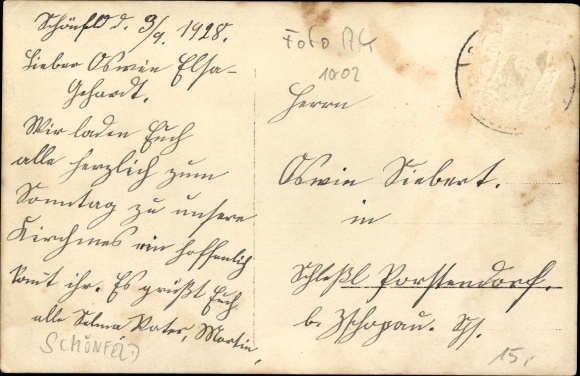 Schönfeld d. 3/9. 1928.
Lieber Oswin Elsa-
Gehardt.
Wir laden Euch
alle herzlich zum
Sonntag zu unsere
Kirchmes ein hoffenlich
komt ihr. Es grüßt Euch
alle Selma Vater, Martin,
SCHÖNFELD
FOTO AG
1002
Herrn
Oswin Siebert.
in
Porstendorf.
b. Zschopau. Sa.
15,-